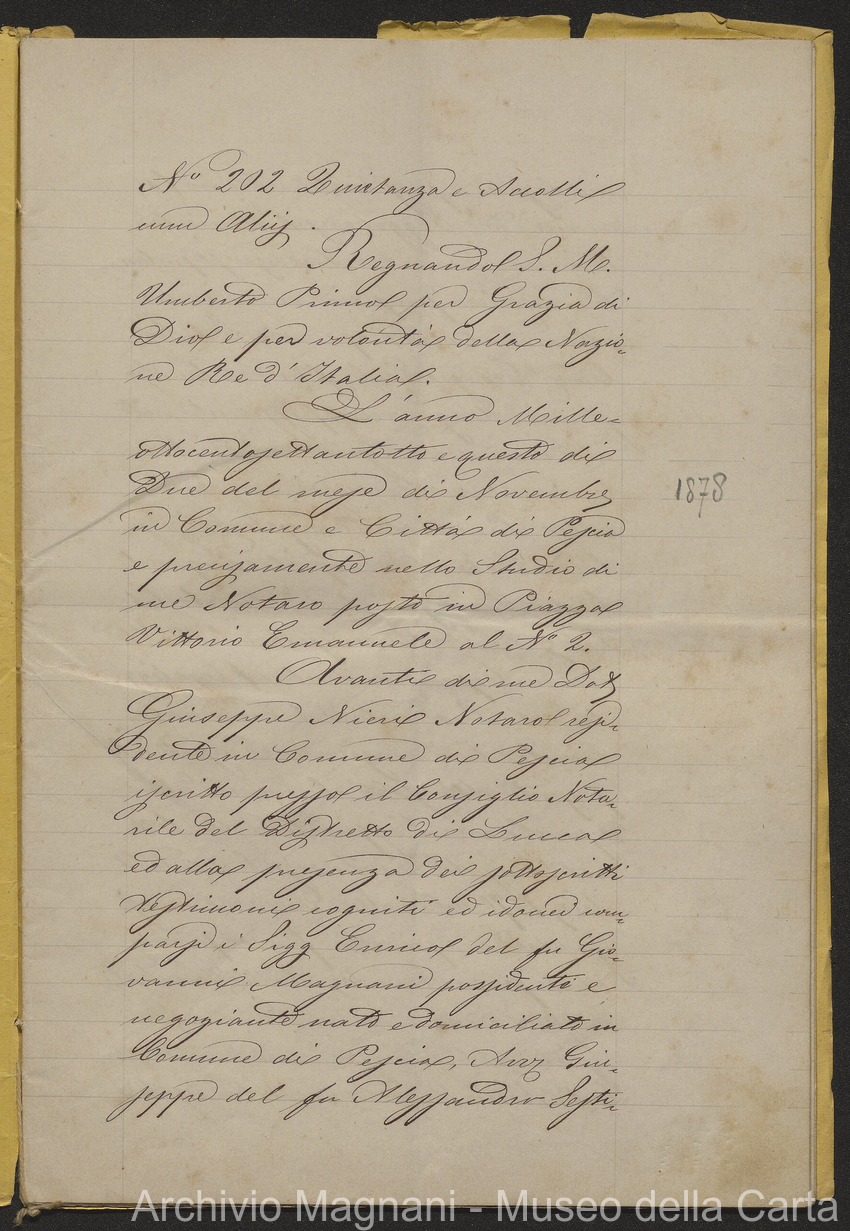 N.o 202 Quietanza e Accolli
cum Aliis.
Regnando S. M.
Umberto Primo per Grazia di
Dio e per volontà della Nazio=
ne Re d'Italia.
L'anno Mille=
ottocentosettantotto e questo di
Due del mese di Novembre
in Comune e Città di Pescia
e precisamente nello Studio di
me Notaro posto in Piazza
Vittorio Emanuele al N.o 2.
Avanti di me Dott
Giuseppe Nieri Notaro resi=
dente in Comune di Pescia
iscritto presso il Consiglio Nota=
rile del Distretto di Lucca
ed alla presenza dei sottoscritti
testimoni cogniti ed idonei com=
parsi i Sigg Enrico del fu Gio=
vanni Magnani possidente e
negoziante nato e domiciliato in
Comune di Pescia, Avv Giu=
seppe del fu Alessandro Sesti=
1878
Archivio Magnani - Museo della Carta